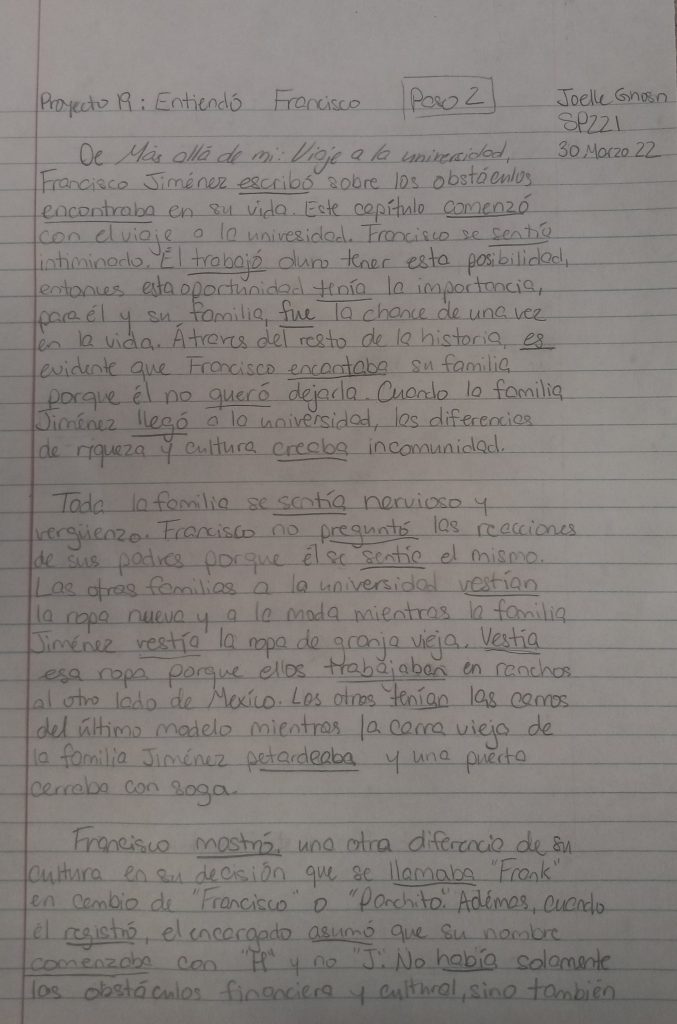 Proyecto 19: Entiendó Francisco Paso 2
Joelle Ghosn
SP221
30 Marzo 22
De Más allá de mi: Viaje a la universidad,
Francisco Jiménez escribó sobre los obstáculos
encontraba en su vida. Este capítulo comenzó
con el viaje a la univesidad. Francisco se sentía
intiminado. Él trabajó duro tener esta posibilidad,
entonces esta oportunidad tenía la importancia,
para él y su familia, fue la chance de una vez
en la vida. Átraves del resto de la historia, es
evidente que Francisco encantaba su familia
porque él no queró dejarla. Cuando la familia
Jiménez llegó a la universidad, las diferencias
de riqueza y cultura creaba incomunidad.
Toda la familia se sentía nervioso y
vergüenzo. Francisco no preguntó las reacciones
de sus padres porque él se sentía el mismo.
Las otras familias a la universidad vestían
la ropa nueva y a la moda mientras la familia
Jiménez vestía la ropa de granja vieja. Vestía
esa ropa porque ellos trabajaban en ranchos
al otro lado de Mexico. Los otros tenían las carros
del último modelo mientras la carra vieja de
la familia Jiménez petardeaba y una puerta
cerraba con soga.
Francisco mostró, una otra diferencia de su
cultura en su decisión que se llamaba "Frank"
en cambio de "Francisco" o "Panchito." Adémas, cuando
él registró, el encargado asumó que su nombre
comenzaba con "H" y no "J". No había solamente
las obstáculos financiera y cultural, sino también